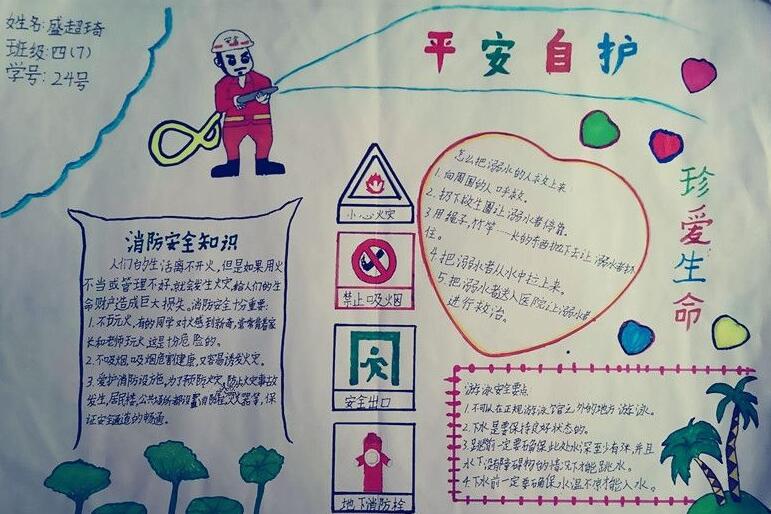 姓名:盛超琦
班级:四(7)
学号:24号
平安自护
珍爱生命
消防安全知识
人们的生活离不开火,但是如果用火
不当或管理不好,就会发生火灾,给人们的生
命财产造成巨大损失。消防安全十分重要:
1.不玩火,有的同学对火感到新奇,常常背着家
长和老师玩火,这是十分危险的。
2.不吸烟,吸烟危害健康,又容易诱发火灾。
3.爱护消防设施,为了预防火灾,防止火灾事故
发生,居民楼、公共场所都设置消防栓、灭火器等,保
证安全通道的畅通。
小心火灾
禁止吸烟
安全出口
地下消防栓
怎么把溺水的人救上来
1.向周围的人呼救。
2.扔下救生圈让溺水者停靠。
3用绳子,竹竿……长的东西抛下去让溺水者抓
住。
4.把溺水者从水中拉上来。
5.把溺水者送入医院让溺水者
进行救治。
游泳安全要点
1.不可以在正规游泳馆之外的地方游泳。
2.下水是要保持良好状态的。
3.跳前一定要确保此处水深至少有3米,并且
水下没有障碍物的情况下才能跳水。
4.下水前一定要确保水温不凉才能入水。